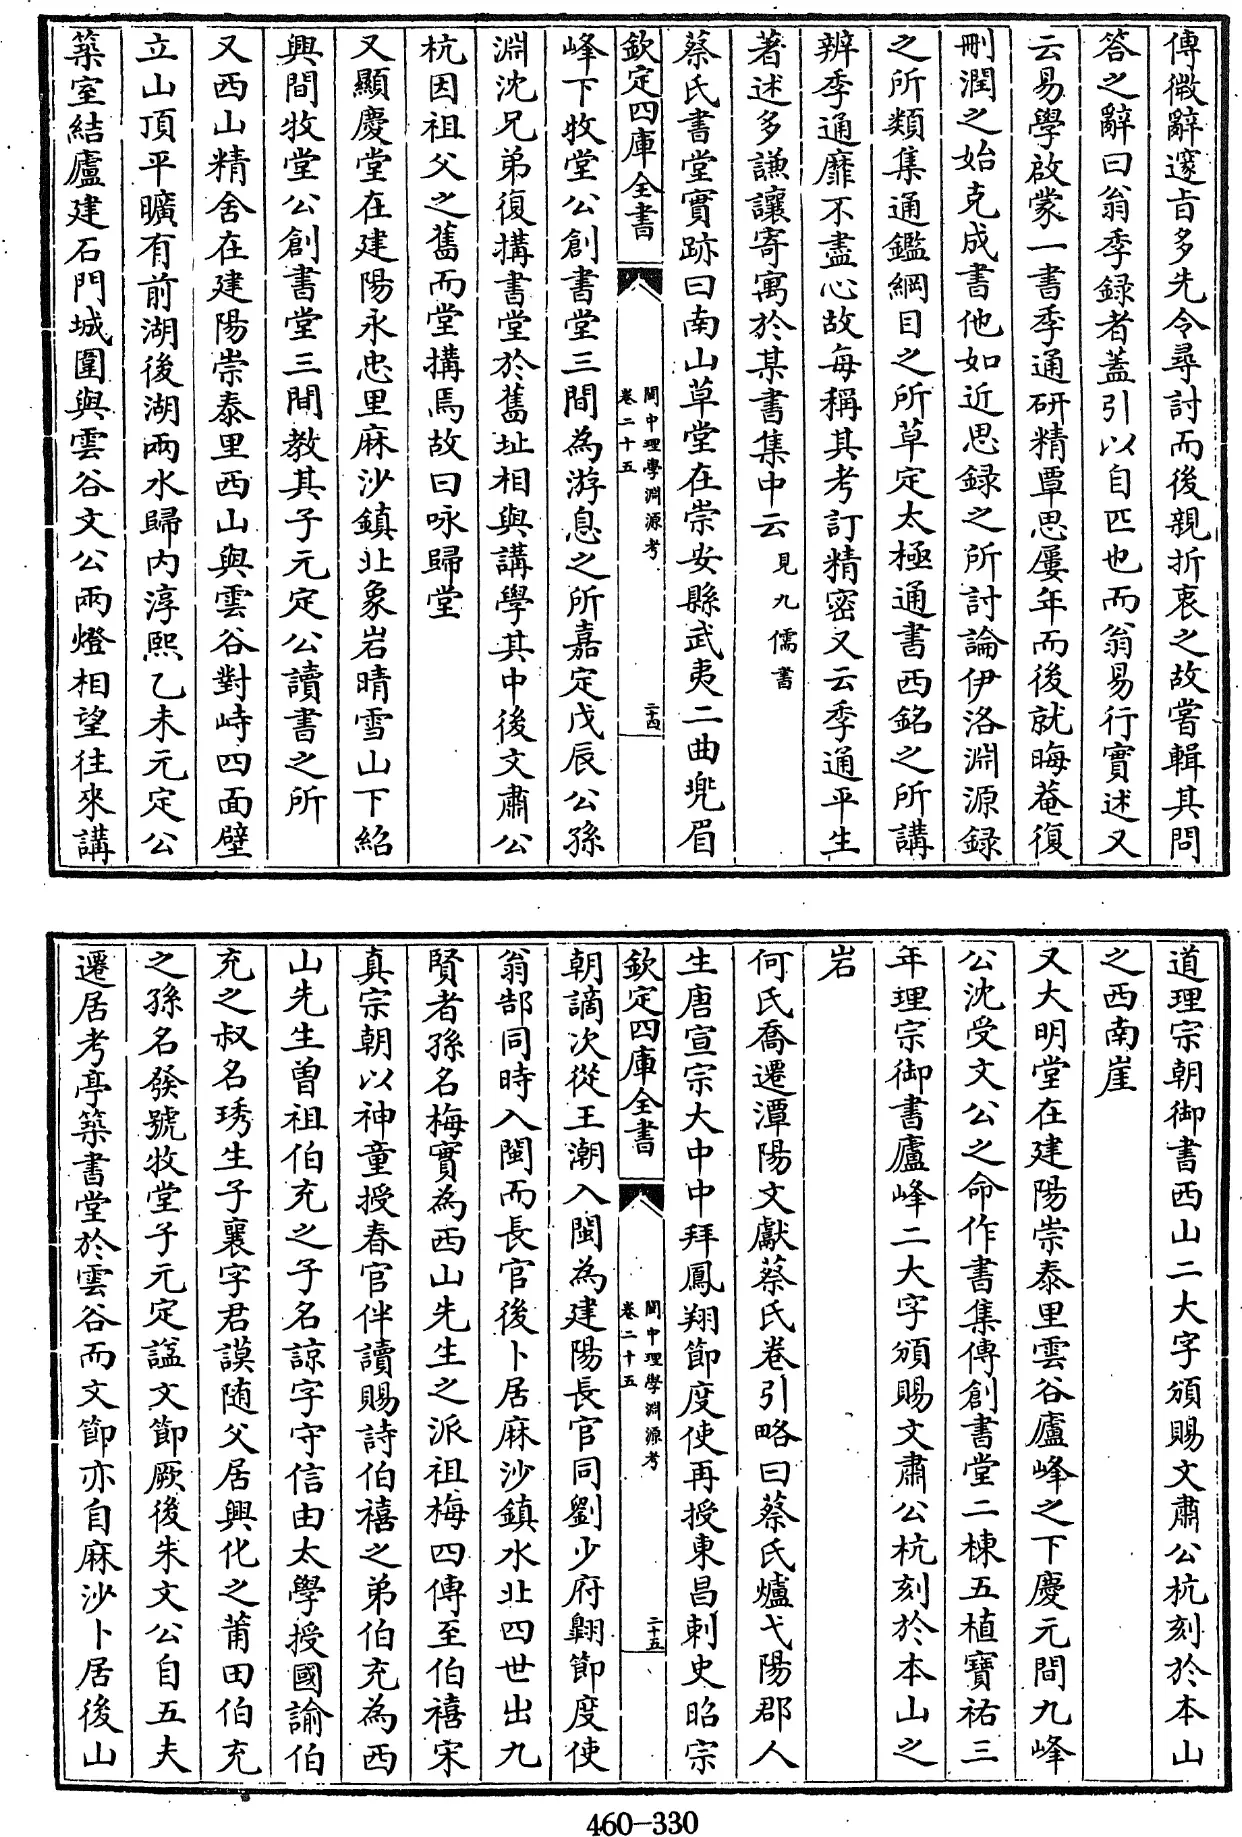 傳微辭邃旨多先令尋討而後親折衷之故嘗輯其問
答之辭曰翁季録者蓋引以自匹也而翁易行實述又
云易學啟蒙一書季通研精覃思屢年而後就晦菴復
刪潤之始克成書他如近思録之所討論伊洛淵源録
之所類集通鑑綱目之所草定太極通書西銘之所講
辨季通靡不盡心故每稱其考訂精密又云季通平生
著述多謙讓寄寓於某書集中云見九儒書
蔡氏書堂實跡曰南山草堂在崇安縣武夷二曲兠眉
欽定四庫全書
閩中理學淵源考
卷二十五
二十四
峰下牧堂公創書堂三間為游息之所嘉定戊辰公孫
淵沈兄弟復搆書堂於舊址相與講學其中後文肅公
杭因祖父之舊而堂搆焉故曰咏歸堂
又顯慶堂在建陽永忠里麻沙鎮北象岩晴雪山下紹
興間牧堂公創書堂三間教其子元定公讀書之所
又西山精舍在建陽崇泰里西山與雲谷對峙四面壁
立山頂平曠有前湖後湖兩水歸内淳熙乙未元定公
築室結廬建石門城圍與雲谷文公兩燈相望往來講
道理宗朝御書西山二大字頒賜文肅公杭刻於本山
之西南崖
又大明堂在建陽崇泰里雲谷廬峰之下慶元間九峰
公沈受文公之命作書集傳創書堂二棟五植寶祐三
年理宗御書廬峰二大字頒賜文肅公杭刻於本山之
岩
何氏喬遷潭陽文獻蔡氏卷引略曰蔡氏爐弋陽郡人
生唐宣宗大中中拜鳳翔節度使再授東昌刺史昭宗
欽定四庫全書
閩中理學淵源考
卷二十五
二十五
朝謫次從王潮入閩為建陽長官同劉少府翱節度使
翁郜同時入閩而長官後卜居麻沙鎮水北四世出九
賢者孫名梅實為西山先生之派祖梅四傳至伯禧宋
真宗朝以神童授春官伴讀賜詩伯禧之弟伯充為西
山先生曾祖伯充之子名諒字守信由太學授國諭伯
充之叔名琇生子襄字君謨隨父居興化之莆田伯充
之孫名發號牧堂子元定諡文節厥後朱文公自五夫
遷居考亭築書堂於雲谷而文節亦自麻沙卜居後山
460-330